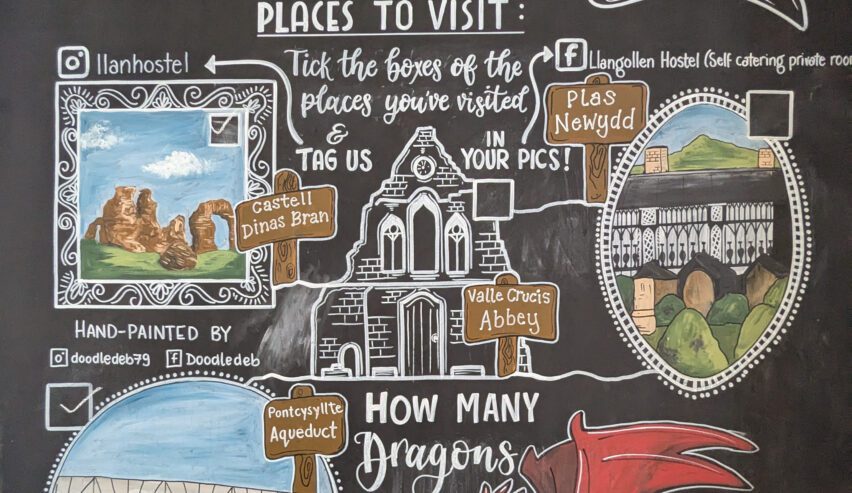 PLACES TO VISIT:
llanhostel
Tick the boxes of the
places you've visited
&
TAG US
IN
YOUR PICS!
f Llangollen Hostel (Self catering private room
Plas
Newydd
Castell
Dinas Bran
Valle Crucis
Abbey
HAND-PAINTED BY
doodledeb79
f Doodledeb
Pontcysyllte
Aqueduct
HOW MANY
Dragons